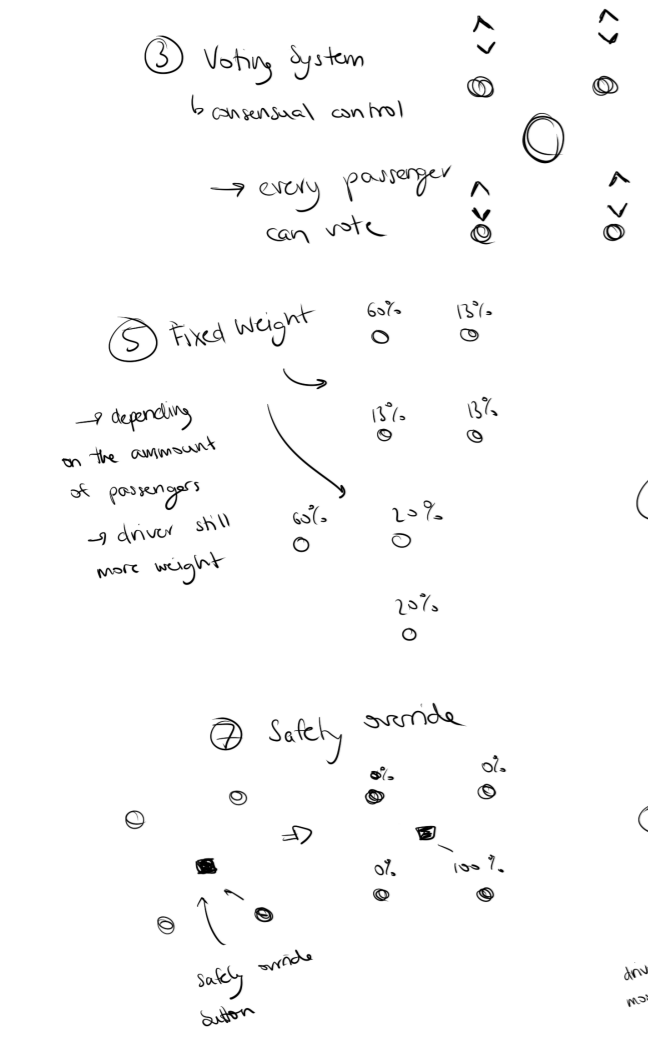 ③ Voting System
↳ consensual control
→ every passenger
can vote
⑤ Fixed Weight
60% 13%
13% 13%
→ depending
on the ammount
of passengers
→ driver still
more weight
60% 20%
20%
⑦ Safety override
0% 0%
0% 100%
Safety override
button